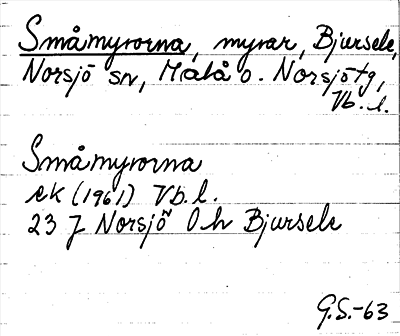 Småmyrorna, myrar, Bjursele,
Norsjö sn, Malå o. Norsjö tg,
Vb. l.
Småmyrorna
ek (1961) Vb. l.
23 J Norsjö 0 h Bjursele
G.S.-63